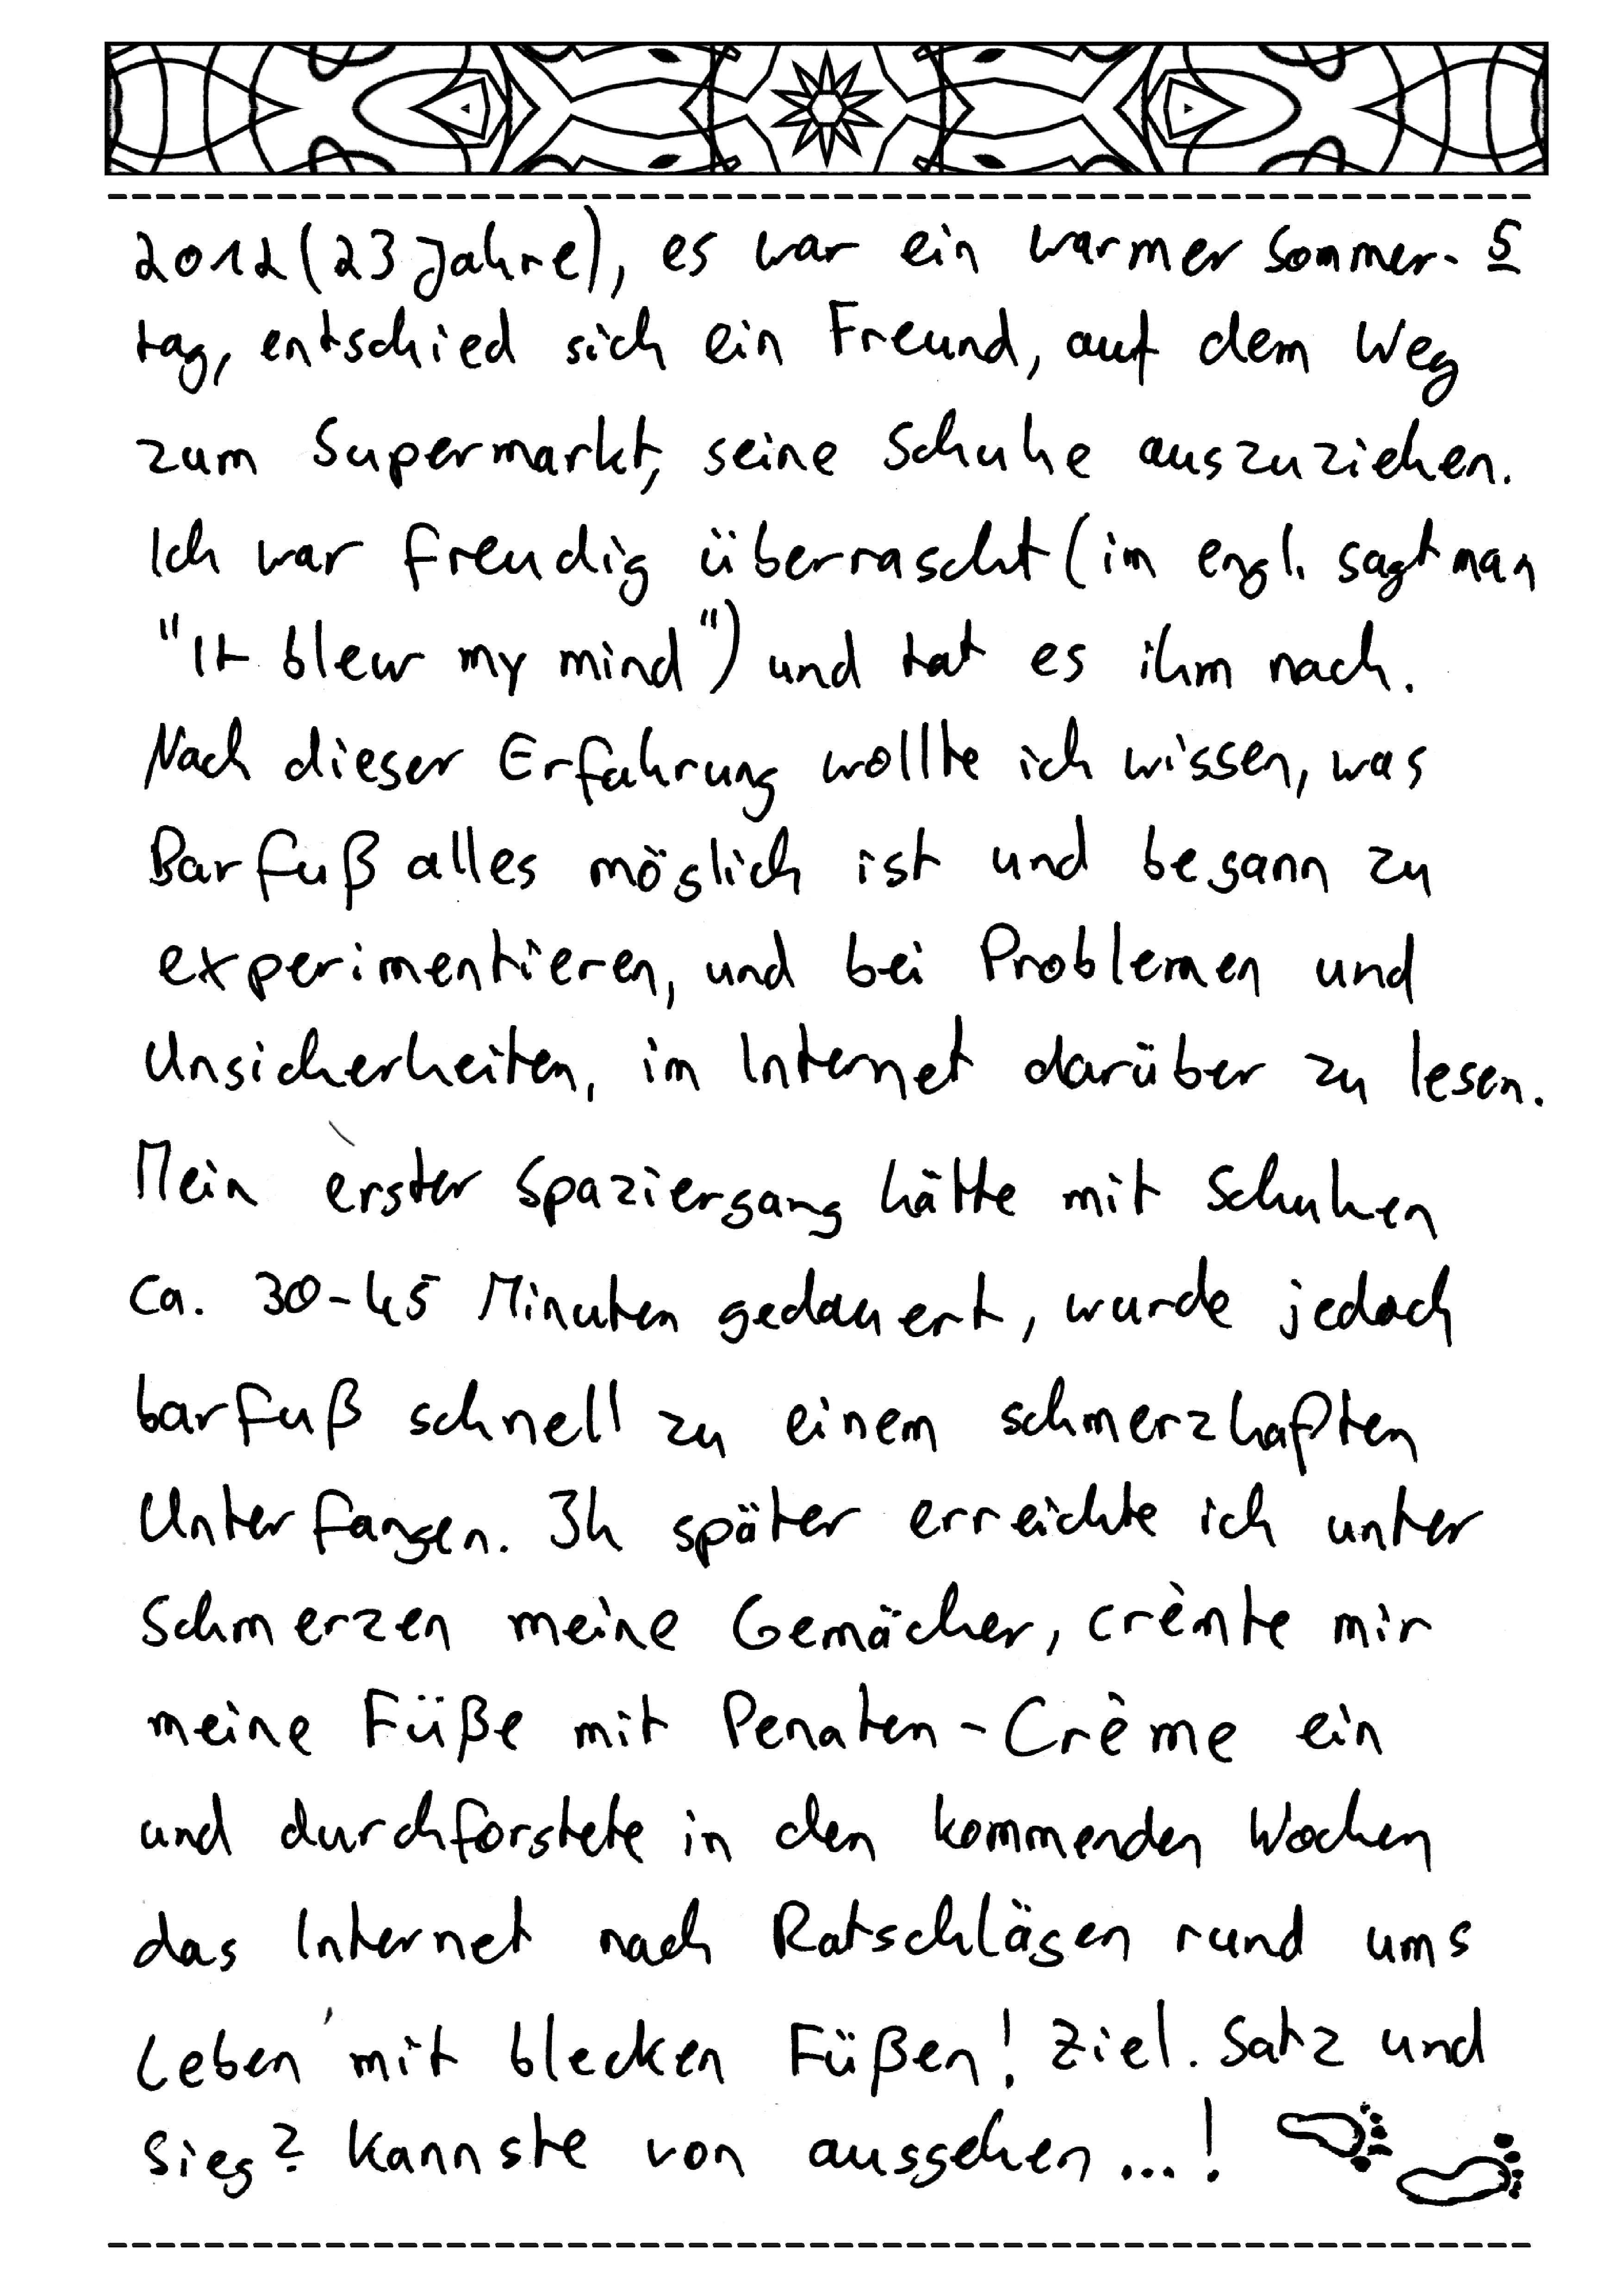 2012 (23 Jahre), es war ein warmer Sommer- 5
tag, entschied sich ein Freund, auf dem Weg
zum Supermarkt, seine Schuhe auszuziehen.
Ich war freudig überrascht (im engl. sagt man
"It blew my mind") und tat es ihm nach.
Nach dieser Erfahrung wollte ich wissen, was
Barfuß alles möglich ist und begann zu
experimentieren, und bei Problemen und
Unsicherheiten, im Internet darüber zu lesen.
Mein erster Spaziergang hätte mit Schuhen
ca. 30-45 Minuten gedauert, wurde jedoch
barfuß schnell zu einem schmerzhaften
Unterfangen. 3h später erreichte ich unter
Schmerzen meine Gemächer, crèmte mir
meine Füße mit Penaten-Crème ein
und durchforstete in den kommenden Wochen
das Internet nach Ratschlägen rund ums
Leben mit blecken Füßen! Ziel. Satz und
Sieg? Kannste von ausgehen...!